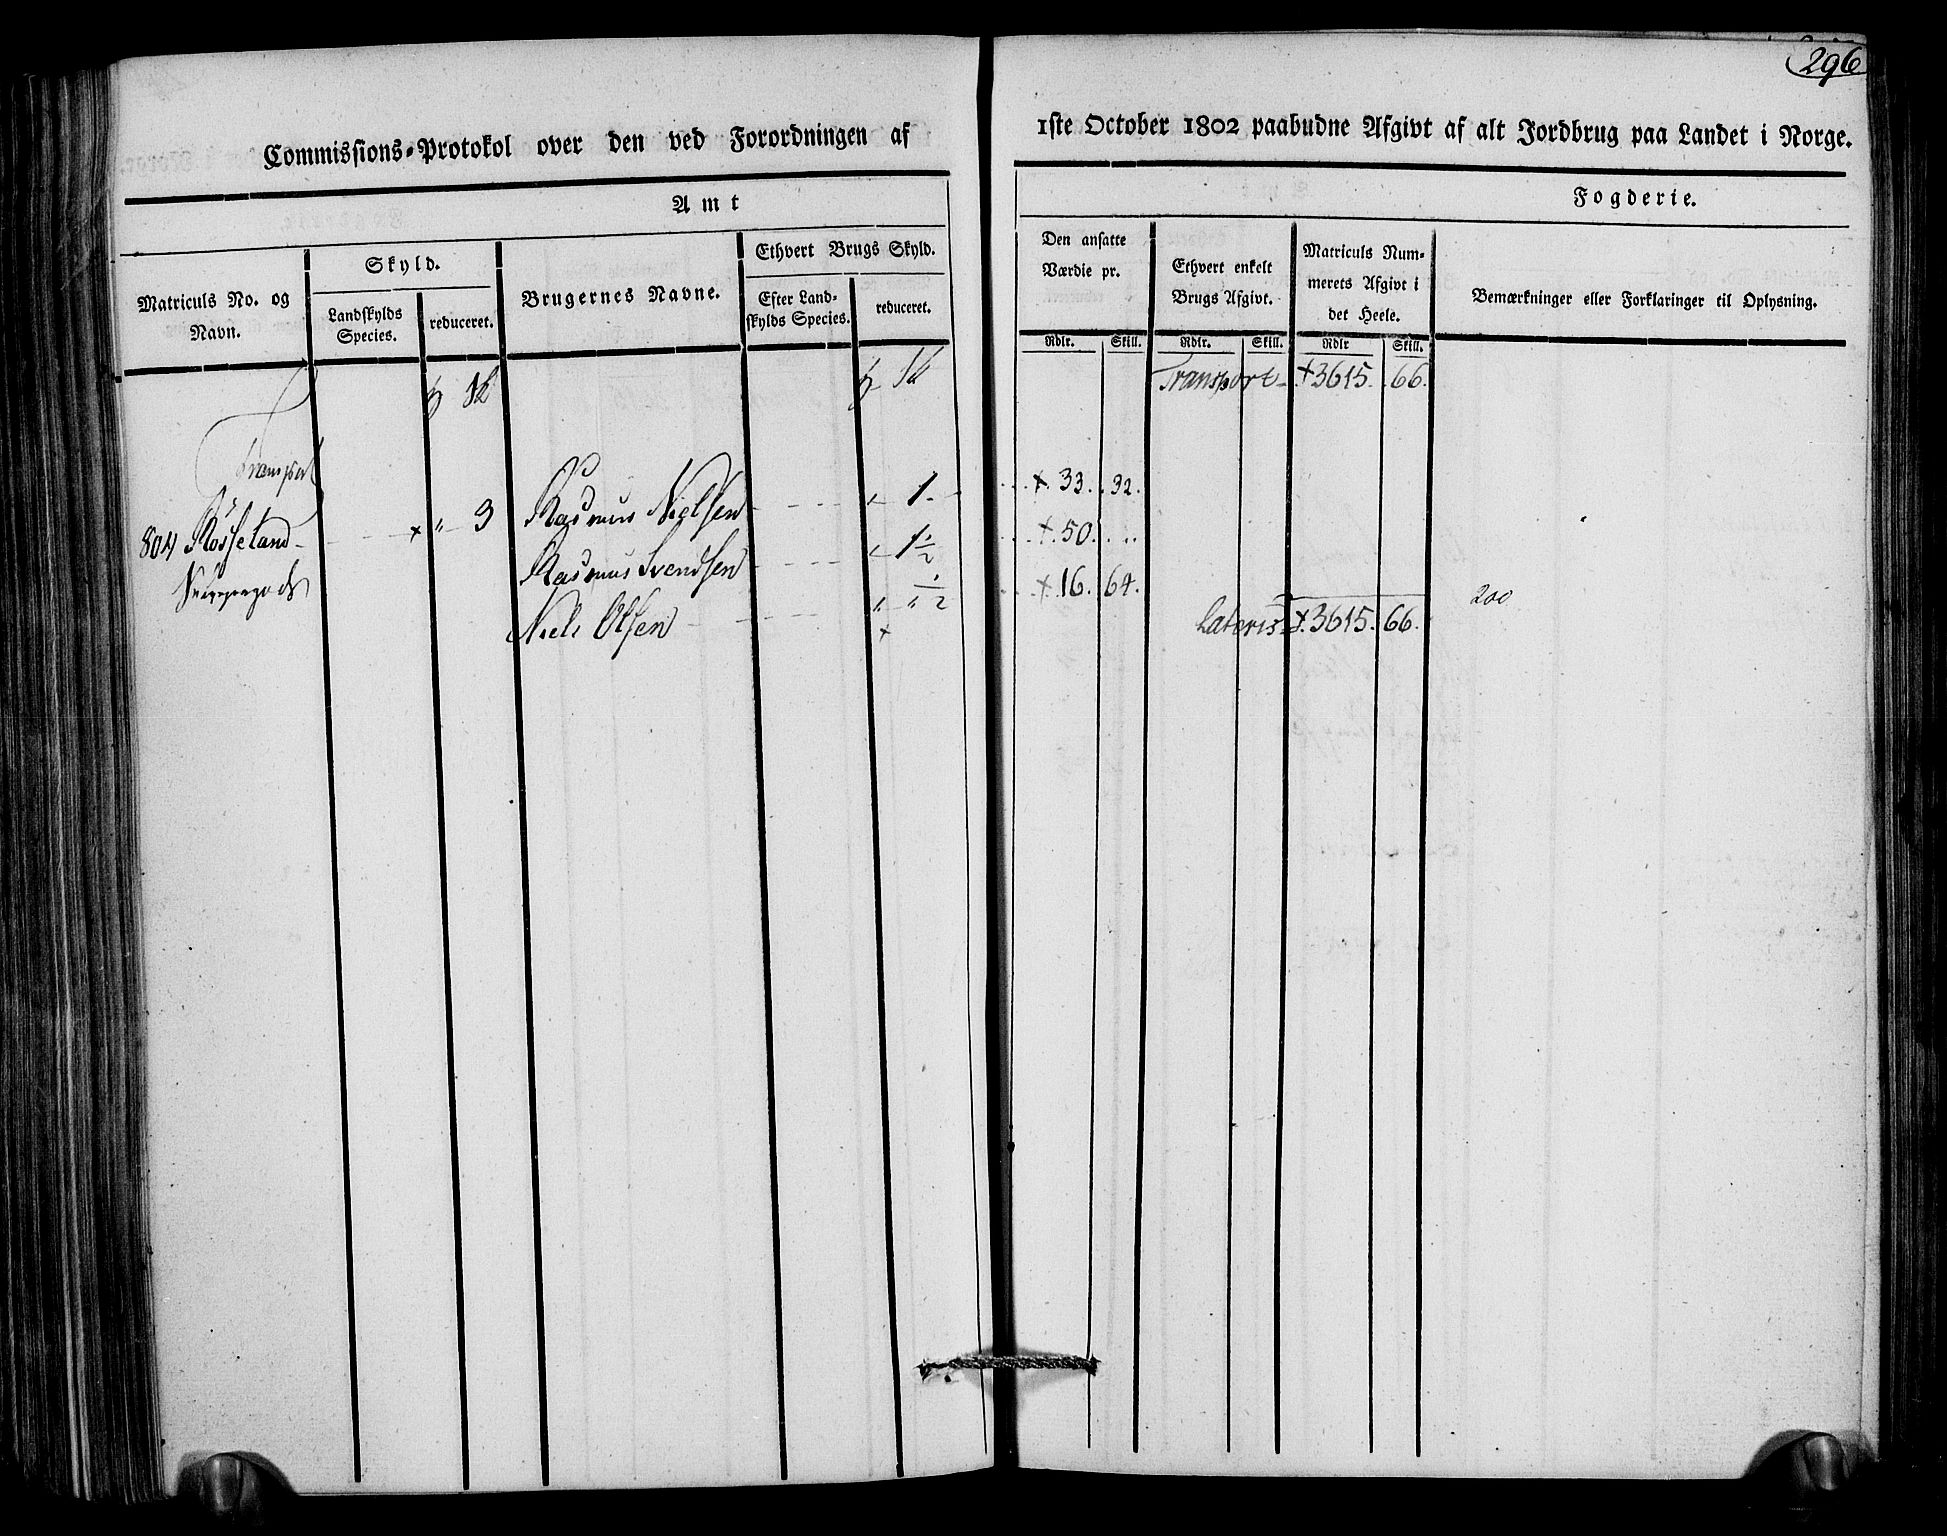 296
Commissions-Protokol over den ved Forordningen af 1ste October 1802 paabudne Afgivt af alt Jordbrug paa Landet i Norge.
Amt Fogderie.
Matriculs No. og Navn.
Skyld.
Landskylds Species.
reduceret.
Brugernes Navne.
Ethvert Brugs Skyld.
Efter Landskylds Species.
reduceret.
Den ansatte Værdie pr.
Rdlr. Skill.
Ethvert enkelt Brugs Afgivt.
Rdlr. Skill.
Matriculs Nummerets Afgivt i det Heele.
Rdlr Skill.
Bemærkninger eller Forklaringer til Oplysning.
Transport - + 3615. 66.
Transport
Rasmus Nielsen - 1. + 33. 32.
804 Røsseland - + " 3
Rasmus Svendsen - 1 1/2 + 50. ..
Niels Olsen - " " 1/2 + 16. 64.
200
Lateris + 3615. 66.